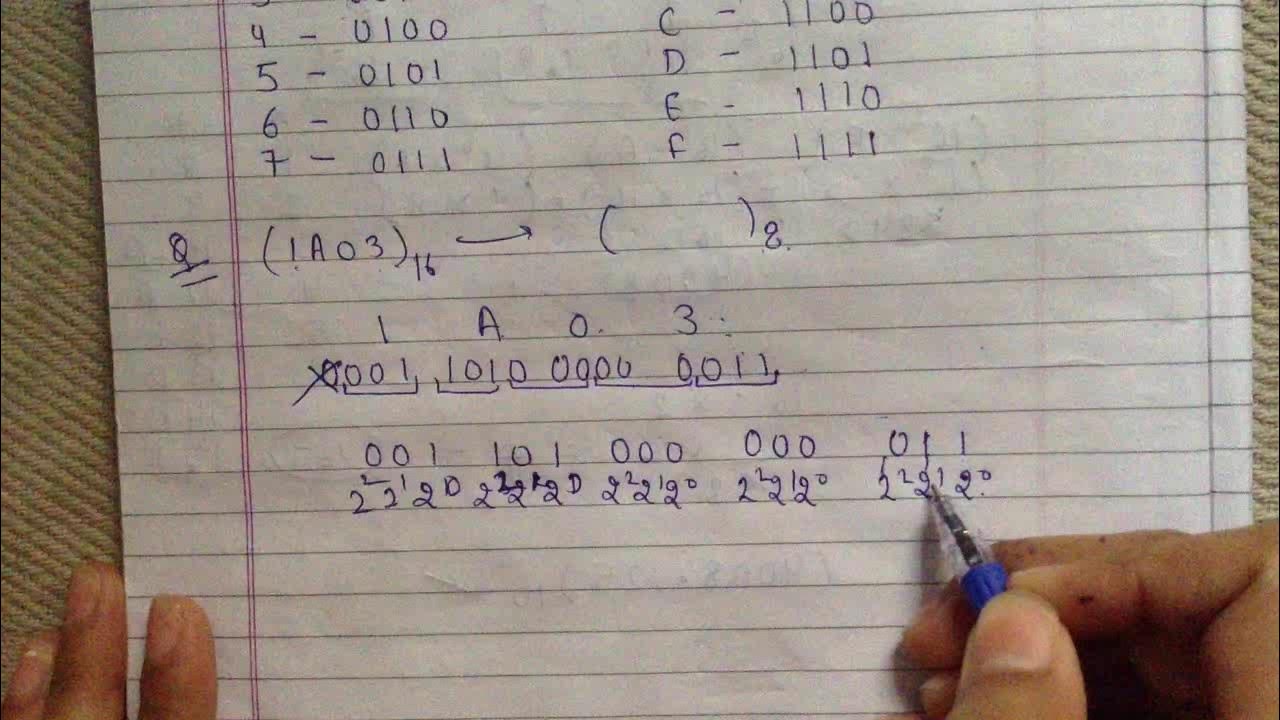 4 - 0100 C - 1100
5 - 0101 D - 1101
6 - 0110 E - 1110
7 - 0111 F - 1111
Q (1A03)16 → ( )8.
1 A 0. 3 :
0001 1010 0000 0011
001 101 000 000 011
2² 2¹ 2⁰ 2² 2¹ 2⁰ 2² 2¹ 2⁰ 2² 2¹ 2⁰ 2² 2¹ 2⁰